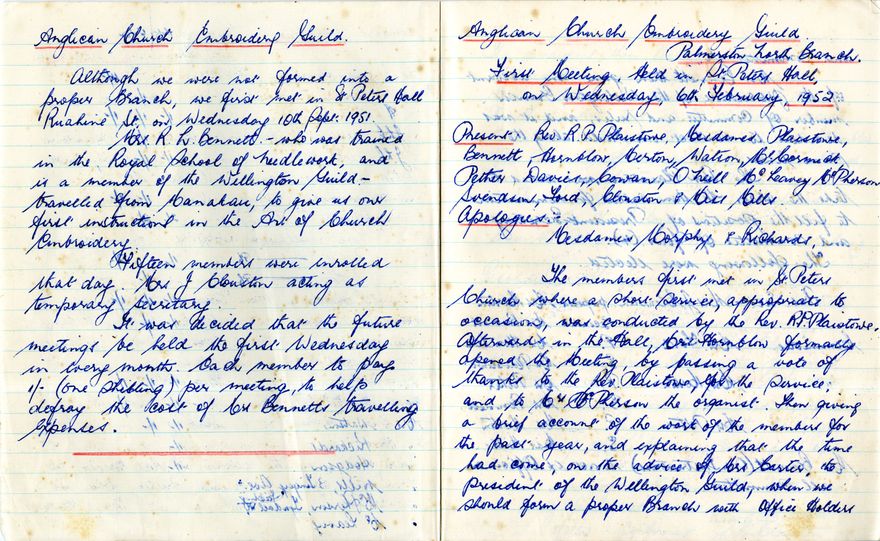 Anglican Church Embroidery Guild.
Although we were not formed into a
proper Branch, we first met in St Peters Hall
Ruahine St, on Wednesday 10th Sept. 1951.
Mrs. R. L. Bennett - who was trained
in the Royal School of Needlework, and
is a member of the Wellington Guild -
travelled from Manakau, to give us our
first instructions in the Art of Church
Embroidery.
Fifteen members were enrolled
that day. Mrs J Clouston acting as
temporary Secretary.
It was decided that the future
meetings be held the first Wednesday
in every month. Each member to pay
1/- (one shilling) per meeting, to help
defray the cost of Mrs Bennetts travelling
expenses.
Anglican Church Embroidery Guild
Palmerston North Branch.
First Meeting, Held in St. Peters Hall
on Wednesday, 6th February, 1952
Present. Rev. R. P. Plaistowe, Mesdames, Plaistowe,
Bennett, Hornblow, Merton, Watson, McCormack
Pether Davies, Cowan, O'Neill McLeavey McPherson
Svendsen, Ford, Clouston & Miss Mills
Apologies. -
Mesdames Morphy & Richards,
The members first met in St Peters
Church, where a short service, appropriate to
occasions, was conducted by the Rev. R.P. Plaistowe.
Afterwards in the Hall, Mrs Hornblow formally
opened the Meeting, by passing a vote of
thanks to the Rev. Plaistowe for the service;
and to Mrs McPherson the organist. Then giving
a brief account of the work of the members for
the past year, and explaining that the time
had come, on the advice of Mrs Carter, the
president of the Wellington Guild, when we
should form a proper Branch with Office Holders